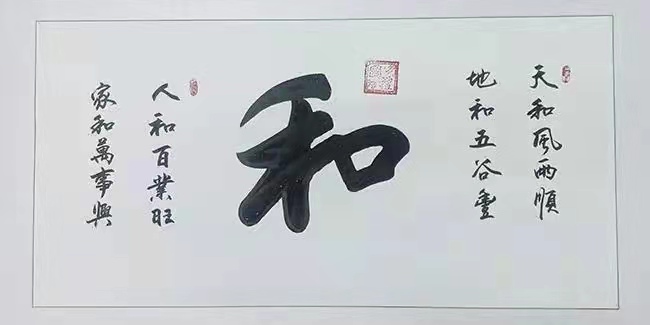 天和風雨順
地和五谷豊
和
人和百業旺
家和萬事興